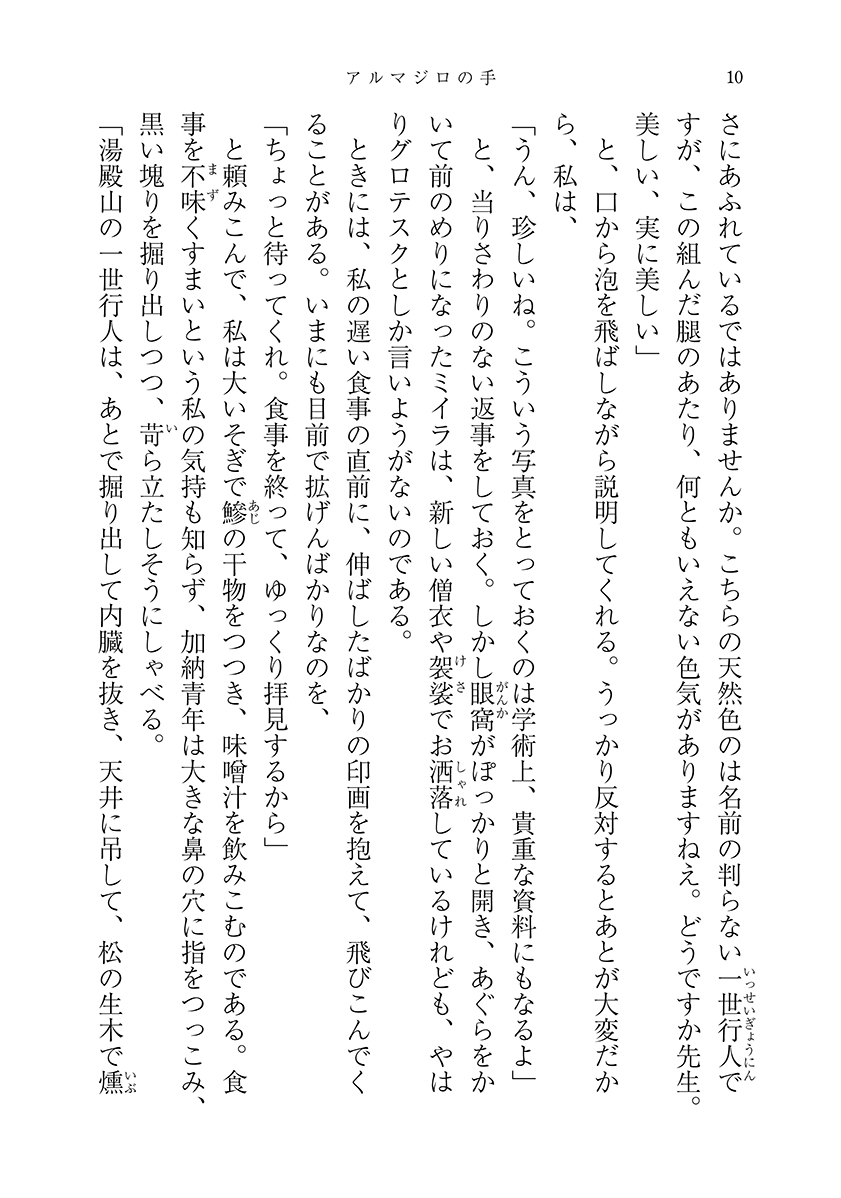 アルマジロの手
10
さにあふれているではありませんか。こちらの天然色のは名前の判らない一世行人で
すが、この組んだ腿のあたり、何ともいえない色気がありますねえ。どうですか先生。
美しい、実に美しい」
と、口から泡を飛ばしながら説明してくれる。うっかり反対するとあとが大変だか
ら、私は、
「うん、珍しいね。こういう写真をとっておくのは学術上、貴重な資料にもなるよ」
と、当りさわりのない返事をしておく。しかし眼窩がぽっかりと開き、あぐらをか
いて前のめりになったミイラは、新しい僧衣や袈裟でお洒落しているけれども、やは
りグロテスクとしか言いようがないのである。
ときには、私の遅い食事の直前に、伸ばしたばかりの印画を抱えて、飛びこんでく
ることがある。いまにも目前で拡げんばかりなのを、
「ちょっと待ってくれ。食事を終って、ゆっくり拝見するから」
と頼みこんで、私は大いそぎで鯵の干物をつつき、味噌汁を飲みこむのである。食
事を不味くすまいという私の気持も知らず、加納青年は大きな鼻の穴に指をつっこみ、
黒い塊りを掘り出しつつ、苛ら立たしそうにしゃべる。
「湯殿山の一世行人は、あとで掘り出して内臓を抜き、天井に吊して、松の生木で燻
いっせいぎょうにん
がんか
けさ
しゃれ
あじ
まず
い
いぶ